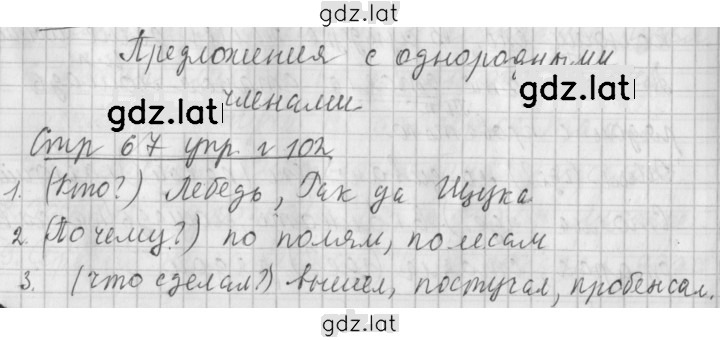 gdz.lat
Предложения с однородными
gdz.lat gdz.lat
членами
Стр 67 упр. 102
1. (Кто?) Лебедь, Рак да Щука
2. (По чему?) по полям, по лесам
3. (что сделал?) вышел, постучал, пробежал.
gdz.lat